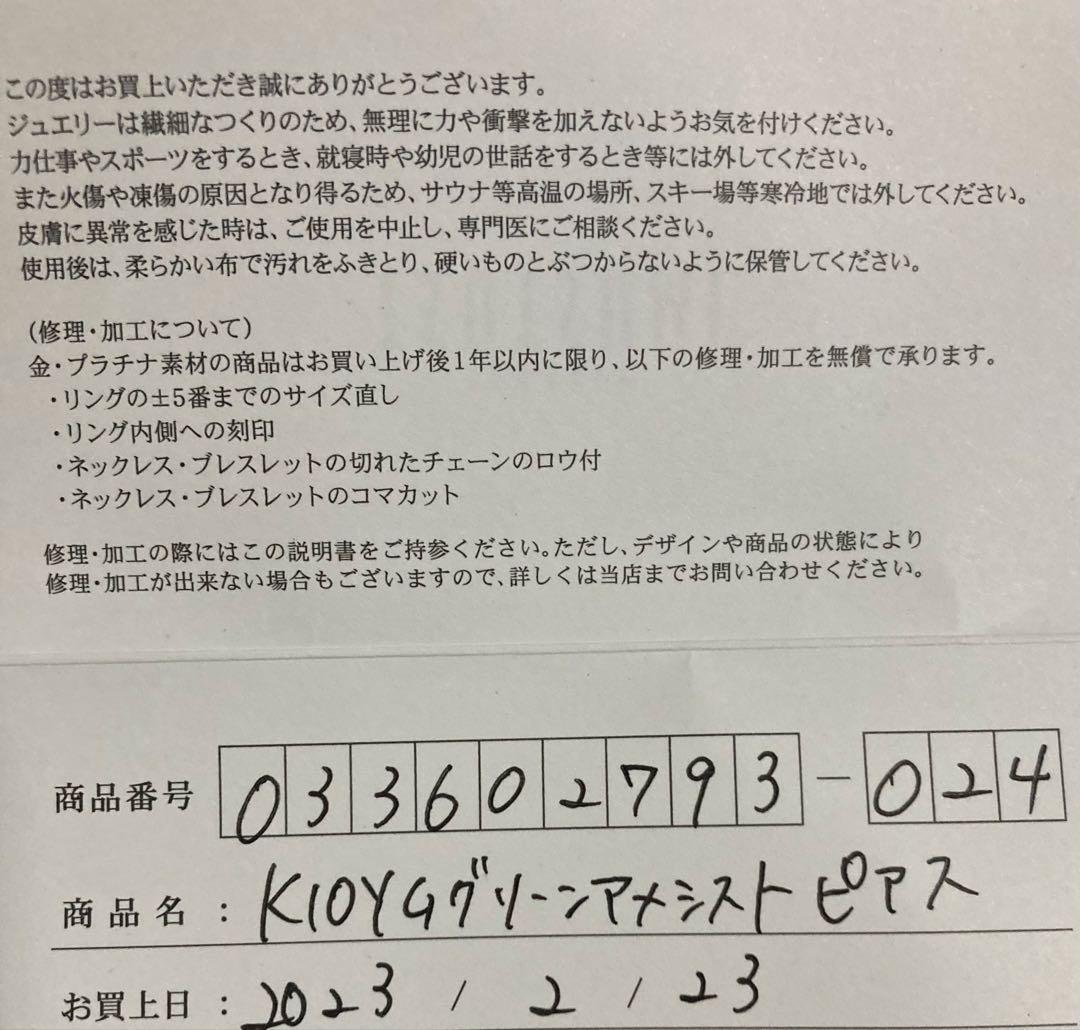 この度はお買上いただき誠にありがとうございます。
ジュエリーは繊細なつくりのため、無理に力や衝撃を加えないようお気を付けください。
力仕事やスポーツをするとき、就寝時や幼児の世話をするとき等には外してください。
また火傷や凍傷の原因となり得るため、サウナ等高温の場所、スキー場等寒冷地では外してください。
皮膚に異常を感じた時は、ご使用を中止し、専門医にご相談ください。
使用後は、柔らかい布で汚れをふきとり、硬いものとぶつからないように保管してください。
（修理・加工について）
金・プラチナ素材の商品はお買い上げ後1年以内に限り、以下の修理・加工を無償で承ります。
・リングの±5番までのサイズ直し
・リング内側への刻印
・ネックレス・ブレスレットの切れたチェーンのロウ付
・ネックレス・ブレスレットのコマカット
修理・加工の際にはこの説明書をご持参ください。ただし、デザインや商品の状態により
修理・加工が出来ない場合もございますので、詳しくは当店までお問い合わせください。
商品番号 033602793 - 024
商品名 : K10YGグリーンアメシストピアス
お買上日 : 2023 / 2 / 23